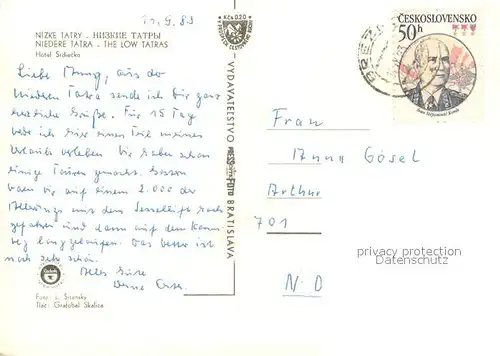 11.9.83
NÍZKE TATRY - НИЗКИЕ ТАТРЫ
NIEDERE TATRA - THE LOW TATRAS
Hotel Srdiečko
Liebe Anny, aus der
Niederen Tatra sende ich Dir ganz
herzliche Grüße. Für 15 Tag
werde ich hier einen Teil meines
Urlaubs verleben. Wir haben schon
einige Touren gemacht. Gestern
waren wir auf einem 2.000 der
mit dem Sessellift hoch
gefahren und dann auf dem Kamm-
weg langgelaufen. Das Wetter ist
noch sehr schön.
Alles Gute
Foto: L. Sitenský
Tlač: Grafobal Skalica
Kčs 0,20
VYDAVATEĽSTVO PRESSFOTO BRATISLAVA
ČESKOSLOVENSKO
50h
BREZ
Frau
Anna Gösel
Arthur
701
N. D
privacy protection
Datenschutz